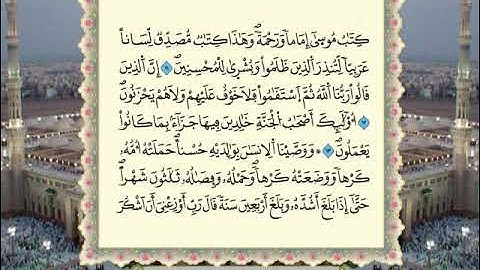 كِتَٰبُ مُوسَىٰٓ إِمَاماً وَرَحْمَةً وَهَٰذَا كِتَٰبٌ مُّصَدِّقٌ لِّسَاناً
عَرَبِيّاً لِّتُنذِرَ اَ۬لذِينَ ظَلَمُواْ وَبُشْرَىٰ لِلْمُحْسِنِينَ إِنَّ اَ۬لذِينَ
قَالُواْ رَبُّنَا اَ۬للَّهُ ثُمَّ اَ۪سْتَقَٰمُواْ فَلَا خَوْفٌ عَلَيْهِمْ وَلَا هُمْ يَحْزَنُونَ
أُوْلَٰٓئِكَ أَصْحَٰبُ اُ۬لْجَنَّةِ خَٰلِدِينَ فِيهَا جَزَآءَۢ بِمَا كَانُواْ
يَعْمَلُونَ وَوَصَّيْنَا اَ۬لِانسَٰنَ بِوَٰلِدَيْهِ حُسْناً حَمَلَتْهُ أُمُّهُۥ
كَرْهاً وَوَضَعَتْهُ كَرْهاً وَحَمْلُهُۥ وَفِصَٰلُهُۥ ثَلَٰثُونَ شَهْراً
حَتَّىٰٓ إِذَا بَلَغَ أَشُدَّهُۥ وَبَلَغَ أَرْبَعِينَ سَنَةً قَالَ رَبِّ أَوْزِعْنِيَ أَنَ اَشْكُرَ